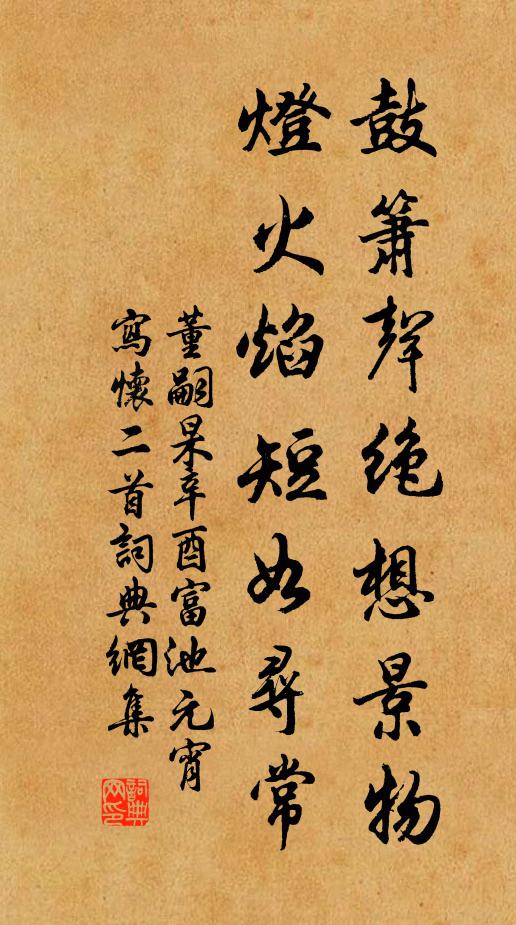 鼓簫聲絶想景物
燈火焰短如尋常
董嗣杲辛酉富池元宵
寫懷二首詞典網集
詞典网印